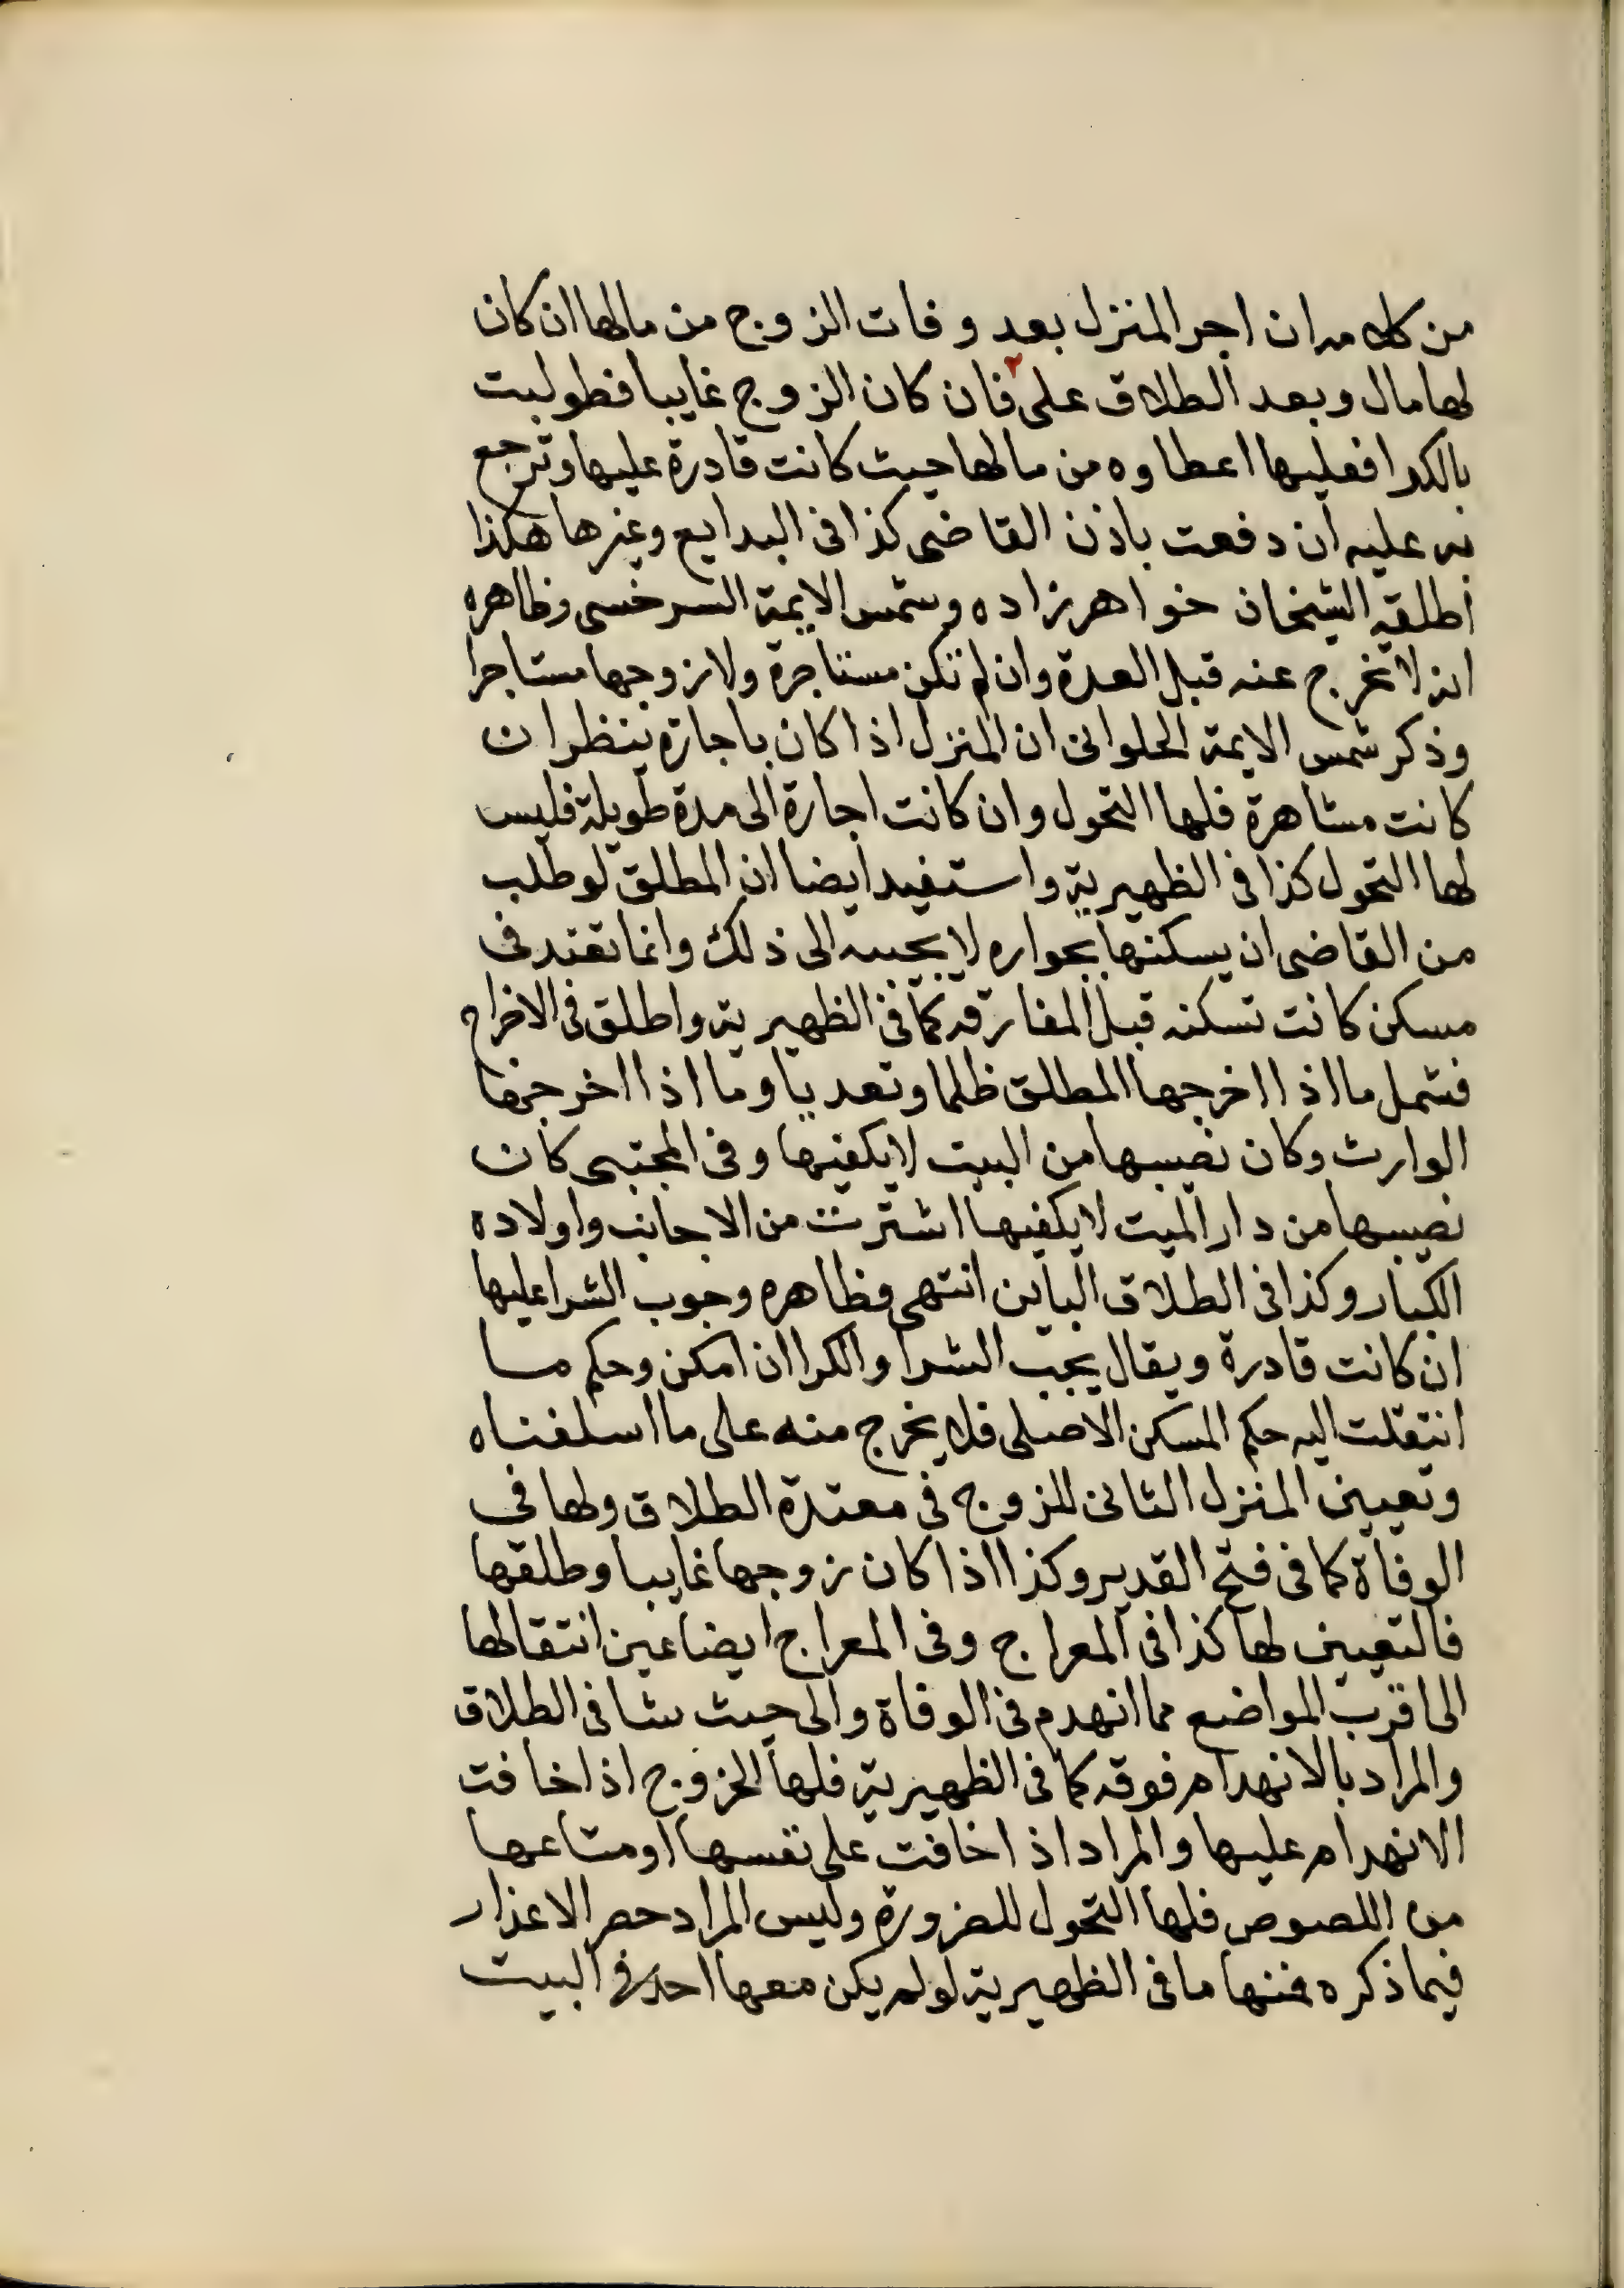 من كلامه ان اجر المنزل بعد وفات الزوج من مالها ان كان
لها مال وبعد الطلاق على ٢ فان كان الزوج غايبا فطولبت
بالكرا فعليها اعطاوه من مالها حيث كانت قادرة عليها وترجع
به عليه ان دفعت باذن القاضى كذا فى البدايع وغيرها هكذا
اطلقه الشيخان خواهرزاده وشمس الايمة السرخسى وظاهره
انه لا تخرج عنه قبل العدة وان لم تكن مستاجرة ولا زوجها مستاجرا
وذكر شمس الايمة الحلوانى ان المنزل اذا كان باجازة ينظر ان
كانت مشاهرة فلها التحول وان كانت اجارة الى مدة طويلة فليس
لها التحول كذا فى الظهيرية واستفيد ايضا ان المطلق لو طلب
من القاضى ان يسكنها بجواره لا يجيبه الى ذلك وانما تعتد فى
مسكن كانت تسكنه قبل المفارقه كما فى الظهيرية واطلق فى الاخراج
فشمل ما اذا اخرجها المطلق ظلما وتعديا وما اذا اخرجها
الوارث وكان نصيبها من البيت لا يكفيها وفى المجتبى كان
نصيبها من دار الميت لا يكفيها اشترت من الاجانب واولاده
الكبار وكذا فى الطلاق الباين انتهى وظاهره وجوب الشرا عليها
ان كانت قادرة ويقال يجب الشرا والكرا ان امكن وحكم ما
انتقلت اليه حكم المسكن الاصلى فلا يخرج منه على ما اسلفناه
وتعيين المنزل الثانى للزوج فى معتدة الطلاق ولها فى
الوفاة كما فى فتح القدير وكذا اذا كان زوجها غايبا وطلقها
فالتعيين لها كذا فى المعراج وفى المعراج ايضا عين انتقالها
الى اقرب المواضع مما انهدم فى الوفاة والى حيث شا فى الطلاق
والمراد بالانهدام فوقه كما فى الظهيرية فلها الخروج اذا خافت
الانهدام عليها والمراد اذا خافت على نفسها او متاعها
من اللصوص فلها التحول للضرورة وليس المراد حصر الاعذار
فيما ذكره فمنها ما فى الظهيرية لو لم يكن معها احد فى البيت